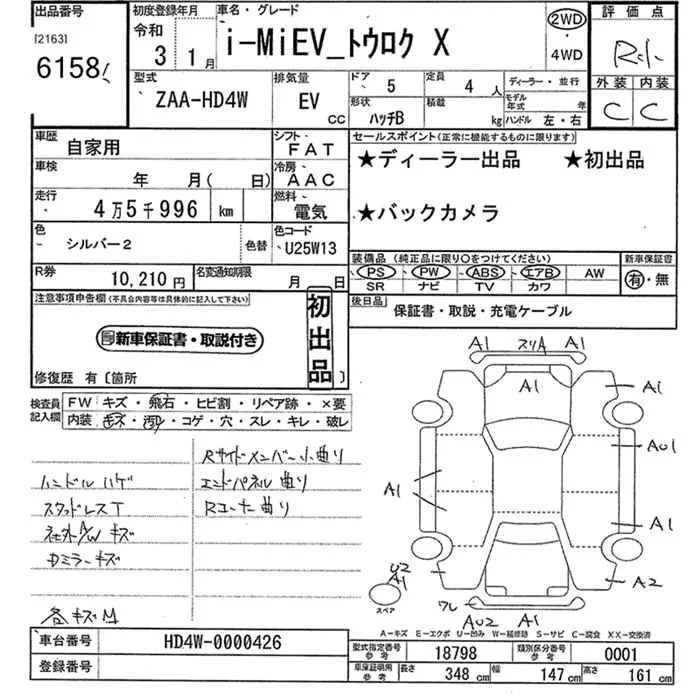 出品番号
[2163]
6158
初度登録年月
令和
3年 1月
車名・グレード
i-MiEV_トウロク X
2WD
・
4WD
評価点
外装 内装
C C
型式
ZAA-HD4W
排気量
EV
CC
ドア
5
定員
4人
形状
ハッチB
積載
kg
ディーラー・並行
モデル年式 年
ハンドル 左・右
車歴
自家用
シフト
FAT
車検
年 月( 日)
冷房
AAC
走行
4万5千996 km
燃料
電気
色
シルバー2
色替
色コード
U25W13
R券
10,210円
名変通知期限
月 日
セールスポイント(正常に機能するものに限ります)
★ディーラー出品 ★初出品
★バックカメラ
装備品(純正品に限り○をつけてください)
PS PW ABS エアB AW
SR ナビ TV カワ
新車保証書
有・無
後日品
保証書・取説・充電ケーブル
注意事項申告欄(不具合内容等は具体的に記入して下さい)
新車保証書・取説付き
初出品
修復歴 有〔箇所 〕
検査員記入欄
FW キズ・飛石・ヒビ割・リペア跡・×要
内装 キズ・汚れ・コゲ・穴・スレ・キレ・破レ
Rサイドメンバー小曲り
ハンドルハゲ
エンドパネル曲り
スタッドレスT
Rコーナー曲り
社外A/Wキズ
ミラーキズ
各キズM
A1 スリA A1
A1
A1
AU1
A1
A1
U2
A1
A2
スペア
ワレ
AU2 A1
A-キズ E-エクボ U-凹み W-補修跡 S-サビ C-腐食 XX-交換済
車台番号
HD4W-0000426
登録番号
型式指定番号 参考
18798
類別区分番号 参考
0001
車庫証明用 参考
長さ 348cm
幅 147cm
高さ 161cm